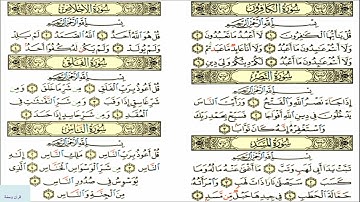 سُورَةُ الكَافِرُونَ
بِسْمِ اللَّهِ الرَّحْمَٰنِ الرَّحِيمِ
قُلْ يَٰٓأَيُّهَا ٱلْكَٰفِرُونَ ١ لَآ أَعْبُدُ مَا تَعْبُدُونَ ٢
وَلَآ أَنتُمْ عَٰبِدُونَ مَآ أَعْبُدُ ٣ وَلَآ أَنَا۠ عَابِدٌ مَّا عَبَدتُّمْ ٤
وَلَآ أَنتُمْ عَٰبِدُونَ مَآ أَعْبُدُ ٥ لَكُمْ دِينُكُمْ وَلِىَ دِينِ ٦
سُورَةُ النَّصْرِ
بِسْمِ اللَّهِ الرَّحْمَٰنِ الرَّحِيمِ
إِذَا جَآءَ نَصْرُ ٱللَّهِ وَٱلْفَتْحُ ١ وَرَأَيْتَ ٱلنَّاسَ
يَدْخُلُونَ فِى دِينِ ٱللَّهِ أَفْوَاجًا ٢ فَسَبِّحْ بِحَمْدِ
رَبِّكَ وَٱسْتَغْفِرْهُ إِنَّهُۥ كَانَ تَوَّابًۢا ٣
سُورَةُ المَسَدِ
بِسْمِ اللَّهِ الرَّحْمَٰنِ الرَّحِيمِ
تَبَّتْ يَدَآ أَبِى لَهَبٍ وَتَبَّ ١ مَآ أَغْنَىٰ عَنْهُ مَالُهُۥ وَمَا
كَسَبَ ٢ سَيَصْلَىٰ نَارًا ذَاتَ لَهَبٍ ٣ وَٱمْرَأَتُهُۥ
حَمَّالَةَ ٱلْحَطَبِ ٤ فِى جِيدِهَا حَبْلٌ مِّن مَّسَدٍۭ ٥
سُورَةُ الإِخْلَاصِ
بِسْمِ اللَّهِ الرَّحْمَٰنِ الرَّحِيمِ
قُلْ هُوَ ٱللَّهُ أَحَدٌ ١ ٱللَّهُ ٱلصَّمَدُ ٢ لَمْ يَلِدْ
وَلَمْ يُولَدْ ٣ وَلَمْ يَكُن لَّهُۥ كُفُوًا أَحَدٌۢ ٤
سُورَةُ الفَلَقِ
بِسْمِ اللَّهِ الرَّحْمَٰنِ الرَّحِيمِ
قُلْ أَعُوذُ بِرَبِّ ٱلْفَلَقِ ١ مِن شَرِّ مَا خَلَقَ ٢ وَمِن
شَرِّ غَاسِقٍ إِذَا وَقَبَ ٣ وَمِن شَرِّ ٱلنَّفَّٰثَٰتِ فِى
ٱلْعُقَدِ ٤ وَمِن شَرِّ حَاسِدٍ إِذَا حَسَدَ ٥
سُورَةُ النَّاسِ
بِسْمِ اللَّهِ الرَّحْمَٰنِ الرَّحِيمِ
قُلْ أَعُوذُ بِرَبِّ ٱلنَّاسِ ١ مَلِكِ ٱلنَّاسِ ٢ إِلَٰهِ
ٱلنَّاسِ ٣ مِن شَرِّ ٱلْوَسْوَاسِ ٱلْخَنَّاسِ ٤ ٱلَّذِى
يُوَسْوِسُ فِى صُدُورِ ٱلنَّاسِ ٥
مِنَ ٱلْجِنَّةِ وَٱلنَّاسِ ٦